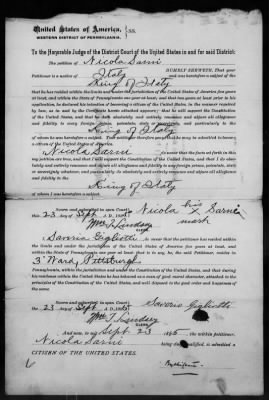 United States of America, } ss.
WESTERN DISTRICT OF PENNSYLVANIA.
To the Honorable Judge of the District Court of the United States in and for said District:
The petition of Nicola Sarni
HUMBLY SHEWETH, That your
Petitioner is a native of Italy and was heretofore a subject of the
King of Italy
that he has resided within the limits and under the jurisdiction of the United States of America five years
last past, and within the State of Pennsylvania one year at least; and that two years at least prior to his
application, he declared his intention of becoming a citizen of the United States, in the manner required
by law, as by said the Certificate hereto attached appears; that he will support the Constitution
of the United States, and that he doth absolutely and entirely renounce and abjure all allegiance
and fidelity to any foreign prince, potentate, state or sovereignty, and particularly to the
King of Italy
of whom he was heretofore a subject. Your petitioner therefore prays that he may be admitted to become
a citizen of the United States.
Nicola Sarni
my petition are true, and that I will support the Constitution of the United States, and that I do absolutely and entirely renounce and abjure all allegiance and fidelity to any foreign prince, potentate, state
or sovereignty whatever, and particularly do absolutely and entirely renounce and abjure all allegiance
and fidelity to the
King of Italy
of whom I was heretofore a subject.
Sworn and subscribed in open Court,
this 23 day of Sept A. D.
Nicola his x Sarni
mark
Wm T. Lindsey
CLERK.
Saverio Gigliotti
within the limits and under the jurisdiction of the United States of America five years at least, and
within the State of Pennsylvania one year at least, that is to say, he, the said Petitioner, resides in
3rd Ward, Pittsburgh
Pennsylvania, within the jurisdiction and under the Constitution of the United States, and that during
his residence within the United States he has behaved as a man of good moral character, attached to the
principles of the Constitution of the United States, and well disposed to the good order and happiness of
the same.
Sworn and subscribed in open Court,
this 23 day of Sept A. D.
Saverio Gigliotti
Wm T. Lindsey
CLERK.
And now, to wit: Sept 23 the within petitioner,
Nicola Sarni being duly qualified, is admitted a
CITIZEN OF THE UNITED STATES.
By the Court